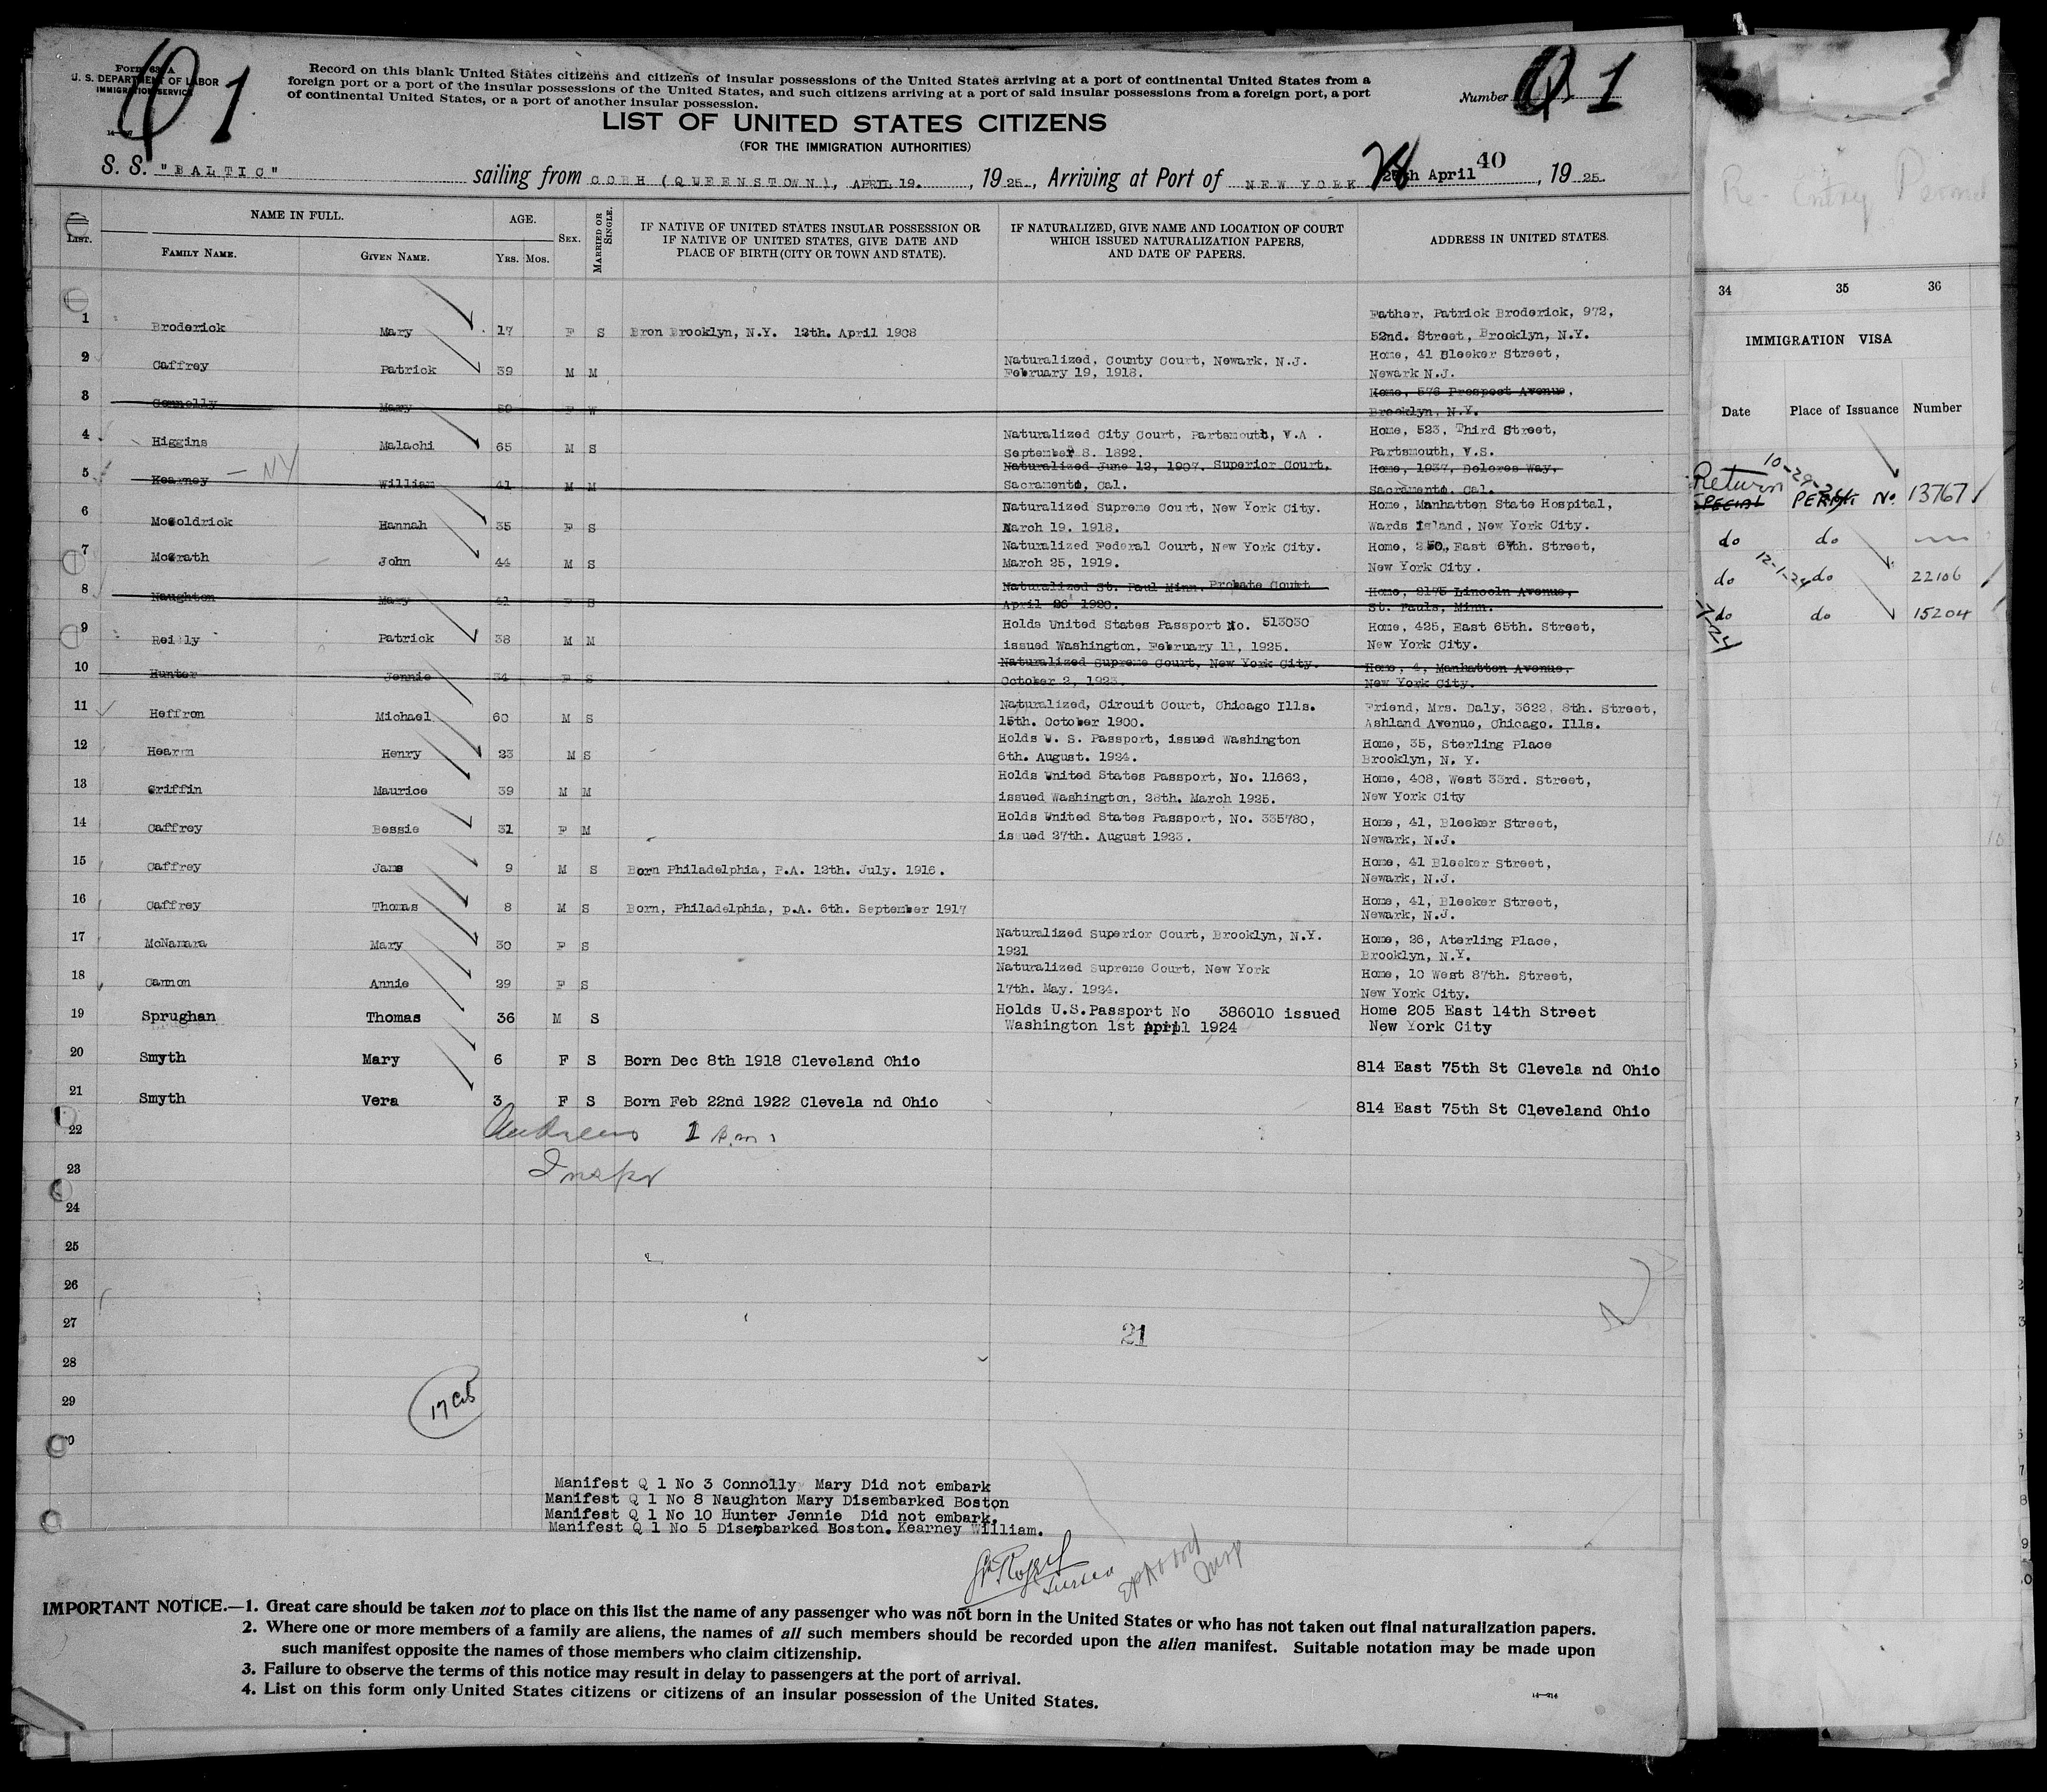 Q 1
Form 630 A
U. S. DEPARTMENT OF LABOR
IMMIGRATION SERVICE
Record on this blank United States citizens and citizens of insular possessions of the United States arriving at a port of continental United States from a
foreign port or a port of the insular possessions of the United States, and such citizens arriving at a port of said insular possessions from a foreign port, a port
of continental United States, or a port of another insular possession.
Number Q 1
LIST OF UNITED STATES CITIZENS
(FOR THE IMMIGRATION AUTHORITIES)
S. S. "BALTIC" sailing from COBH (QUEENSTOWN), APRIL 19. , 1925., Arriving at Port of NEW YORK 28 April 40 , 1925.
LIST. NAME IN FULL. FAMILY NAME. GIVEN NAME. AGE. YRS. MOS. SEX. MARRIED OR SINGLE. IF NATIVE OF UNITED STATES INSULAR POSSESSION OR IF NATIVE OF UNITED STATES, GIVE DATE AND PLACE OF BIRTH (CITY OR TOWN AND STATE). IF NATURALIZED, GIVE NAME AND LOCATION OF COURT WHICH ISSUED NATURALIZATION PAPERS, AND DATE OF PAPERS. ADDRESS IN UNITED STATES.
1 Broderick Mary 17 F S Bron Brooklyn, N.Y. 12th. April 1908 Father, Patrick Broderick, 972,
52nd. Street, Brooklyn, N.Y.
2 Caffrey Patrick 39 M M Naturalized, County Court, Newark, N.J. Home, 41 Bleeker Street,
February 19, 1918. Newark N.J.
3 Connolly Mary 50 F W Home, 576 Prospect Avenue,
Brooklyn, N.Y.
4 Higgins Malachi 65 M S Naturalized City Court, Partsmouth, V.A . Home, 523, Third Street,
September 8. 1892. Partsmouth, V.S.
5 Kearney - NY William 41 M M Naturalized June 12, 1907. Superior Court, Home, 1937, Dolores Way,
Sacramento, Cal. Sacramento. Cal.
6 McGoldrick Hannah 35 F S Naturalized Supreme Court, New York City. Home, Manhatten State Hospital,
March 19. 1918. Wards Island, New York City.
7 McGrath John 44 M S Naturalized Federal Court, New York City. Home, 250, East 67th. Street,
March 25, 1919. New York City.
8 Naughton Mary 41 F S Naturalized St. Paul Minn. Probate Court Home, 2175 Lincoln Avenue,
April 26 1920. St. Pauls, Minn.
9 Reilly Patrick 38 M M Holds United States Passport No. 513030 Home, 425, East 65th. Street,
issued Washington, February 11, 1925. New York City.
10 Hunter Jennie 34 F S Naturalized Supreme Court, New York City. Home, 4, Manhatton Avenue,
October 2, 1923. New York City.
11 Heffron Michael 60 M S Naturalized, Circuit Court, Chicago Ills. Friend, Mrs. Daly, 3622, 8th. Street,
15th. October 1900. Ashland Avenue, Chicago. Ills.
12 Hearn Henry 23 M S Holds U. S. Passport, issued Washington Home, 35, Sterling Place
6th. August. 1924. Brooklyn, N. Y.
13 Griffin Maurice 39 M M Holds United States Passport, No. 11662, Home, 408, West 33rd. Street,
issued Washington, 28th. March 1925. New York City
14 Caffrey Bessie 31 F M Holds United States Passport, No. 335780, Home, 41, Bleeker Street,
issued 27th. August 1923. Newark, N.J.
15 Caffrey Jams 9 M S Born Philadelphia, P.A. 12th. July. 1916. Home, 41 Bleeker Street,
Newark, N.J.
16 Caffrey Thomas 8 M S Born, Philadelphia, p.A. 6th. September 1917 Home, 41, Bleeker Street,
Newark, N.J.
17 McNamara Mary 30 F S Naturalized Superior Court, Brooklyn, N.Y. Home, 26, Aterling Place,
1921 Brooklyn, N.Y.
18 Cannon Annie 29 F S Naturalized Supreme Court, New York Home, 10 West 87th. Street,
17th. May. 1924. New York City.
19 Sprughan Thomas 36 M S Holds U.S.Passport No 386010 issued Home 205 East 14th Street
Washington 1st April 1924 New York City
20 Smyth Mary 6 F S Born Dec 8th 1918 Cleveland Ohio 814 East 75th St Clevela nd Ohio
21 Smyth Vera 3 F S Born Feb 22nd 1922 Clevela nd Ohio 814 East 75th St Cleveland Ohio
22 Andrews 1
23 Inspr
24
25
26
27 21
28
29 17 Cit
30
Manifest Q 1 No 3 Connolly Mary Did not embark
Manifest Q 1 No 8 Naughton Mary Disembarked Boston
Manifest Q 1 No 10 Hunter Jennie Did not embark.
Manifest Q 1 No 5 Disembarked Boston. Kearney William.
IMPORTANT NOTICE.—1. Great care should be taken not to place on this list the name of any passenger who was not born in the United States or who has not taken out final naturalization papers.
2. Where one or more members of a family are aliens, the names of all such members should be recorded upon the alien manifest. Suitable notation may be made upon
such manifest opposite the names of those members who claim citizenship.
3. Failure to observe the terms of this notice may result in delay to passengers at the port of arrival.
4. List on this form only United States citizens or citizens of an insular possession of the United States.
14—214
Re-Entry Permit
34 35 36
IMMIGRATION VISA
Date Place of Issuance Number
Return SPECIAL PERMIT No 13767
do do
do 12-1-24 do 22106
do do 15204